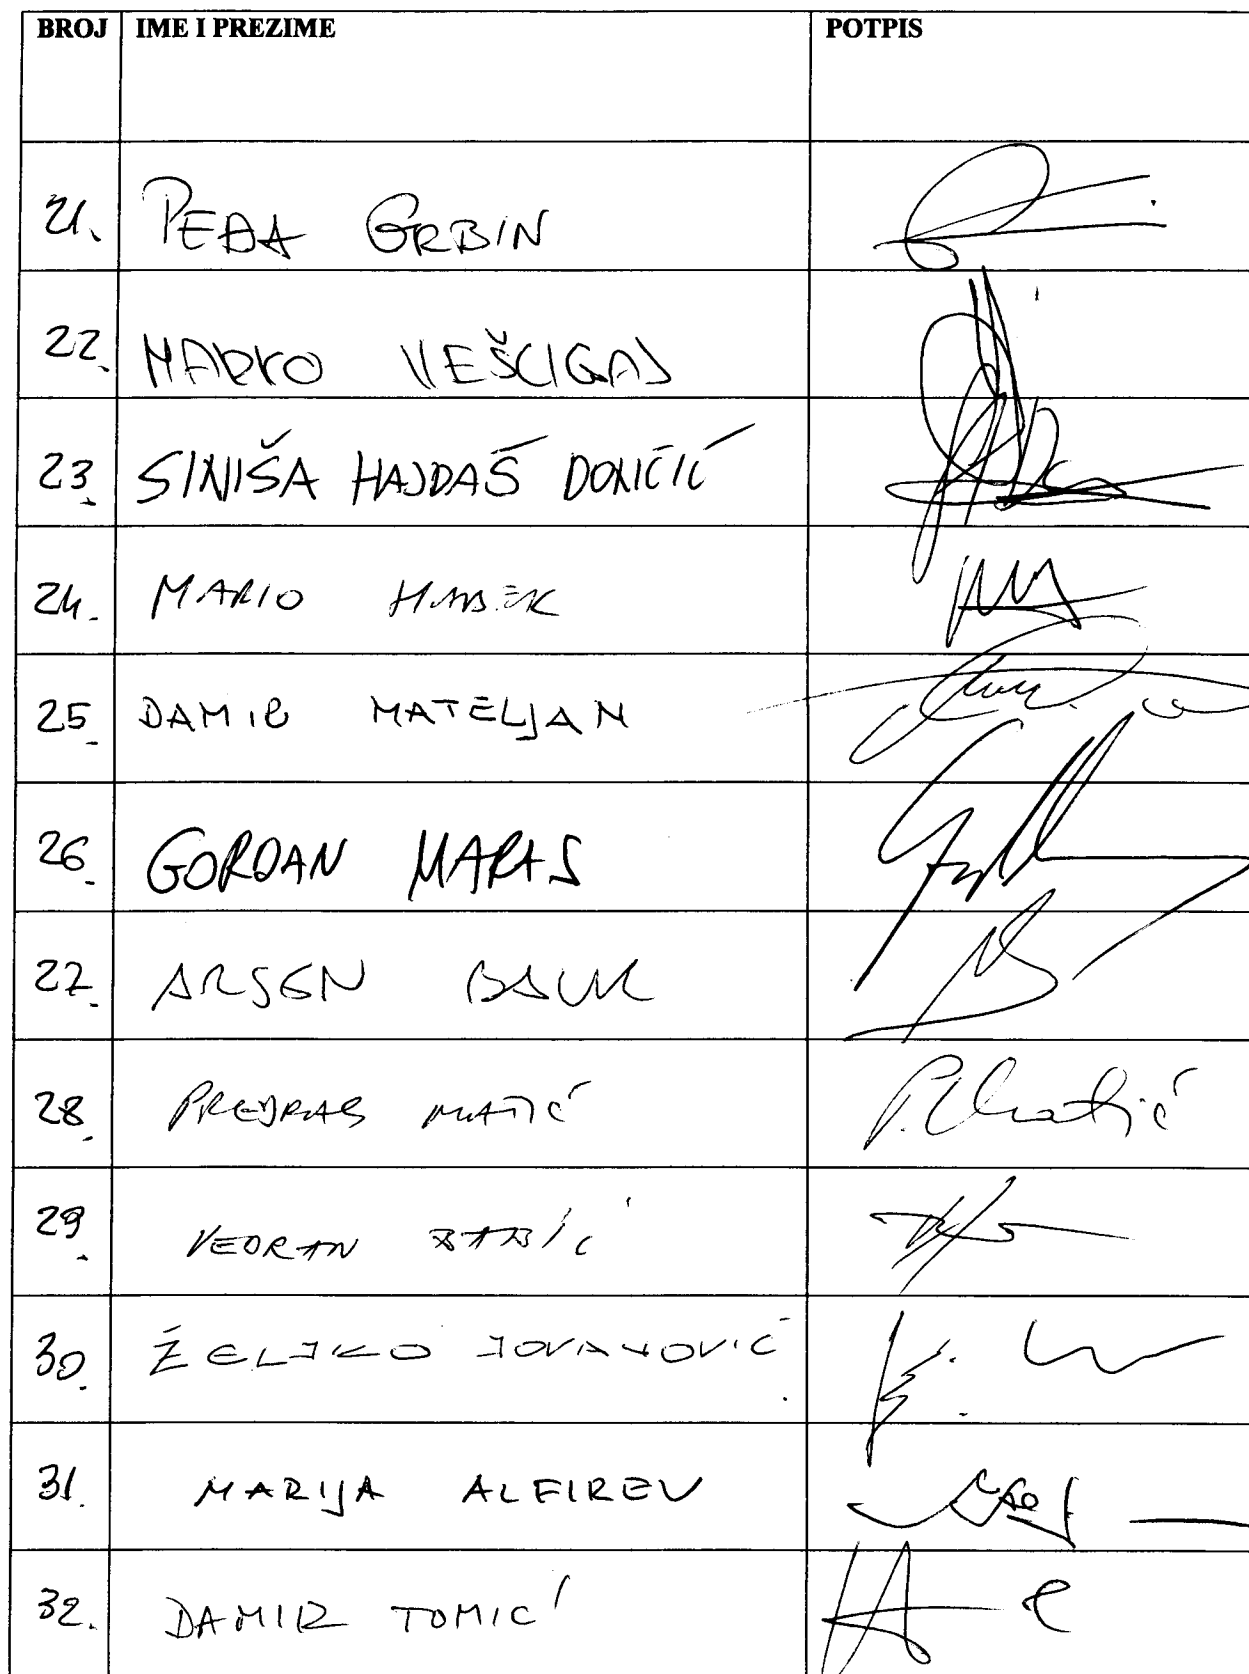 BROJ IME I PREZIME POTPIS
21. PEĐA GRBIN
22. MARKO VEŠLIGAJ
23. SINIŠA HAJDAŠ DONČIĆ
24. MARIO HABEK
25. DAMIR MATELJAN
26. GORDAN MARAS
27. ARSEN BAUK
28. PREDRAG MATIĆ P. Matić
29. VEDRAN BABIĆ
30. ŽELJKO JOVANOVIĆ
31. MARIJA ALFIREV
32. DAMIR TOMIĆ